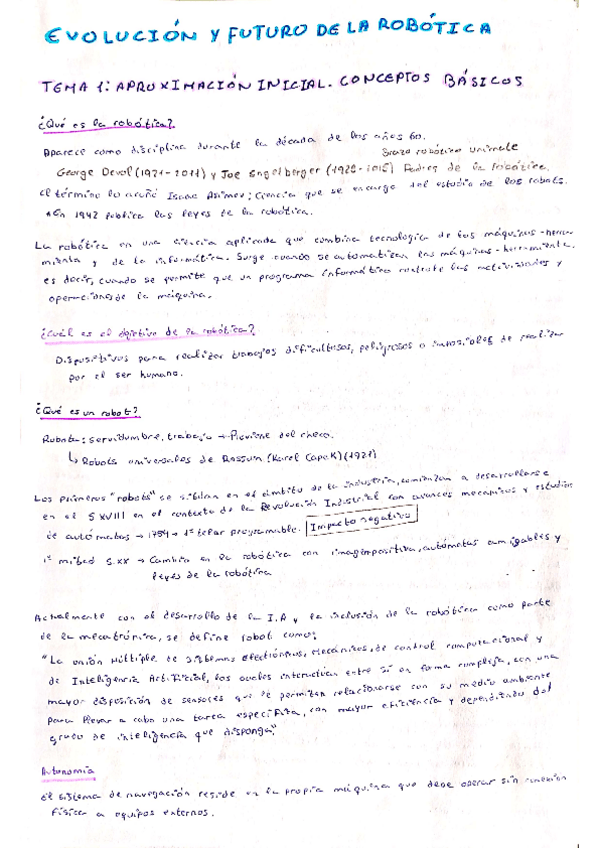 EVOLUCIÓN Y FUTURO DE LA ROBÓTICA
TEMA 1: APROXIMACIÓN INICIAL. CONCEPTOS BÁSICOS
¿Qué es la robótica?
Aparece como disciplina durante la década de los años 60.
Brazo robótico unimate
George Devol (1921-2011) y Joe Engelberger (1925-2015) Padres de la robótica.
El término lo acuñó Isaac Asimov; Ciencia que se encarga del estudio de los robots.
En 1942 publica las leyes de la robótica.
La robótica en una ciencia aplicada que combina tecnología de las máquinas-herra-
mienta y de la informática. Surge cuando se automatizan las máquinas-herramienta,
es decir, cuando se permite que un programa informático controle las actividades y
operaciones de la máquina.
¿Cuál es el objetivo de la robótica?
Dispositivos para realizar trabajos dificultosos, peligrosos o imposibles de realizar
por el ser humano.
¿Qué es un robot?
Robota: servidumbre, trabajo → Proviene del checo.
↳ Robots universales de Rossum (Karel Capek) (1921)
Los primeros "robots" se sitúan en el ámbito de la industria, comienzan a desarrollarse
en el S XVIII en el contexto de la Revolución Industrial con avances mecánicos y estudios
de autómatas → 1784 → 1º telar programable. Impacto negativo
1ª mitad S.XX → Cambio en la robótica con imagen positiva, autómatas amigables y
leyes de la robótica
Actualmente con el desarrollo de la I.A y la inclusión de la robótica como parte
de la mecatrónica, se define robot como:
"La unión múltiple de sistemas electrónicos, mecánicos, de control computacional y
de Inteligencia Artificial, los cuales interactúan entre sí en forma compleja, con una
mayor disposición de sensores que le permitan relacionarse con su medio ambiente
para llevar a cabo una tarea específica, con mayor eficiencia y dependiendo del
grado de inteligencia que disponga".
Autonomía
El sistema de navegación reside en la propia máquina que debe operar sin conexión
física a equipos externos.